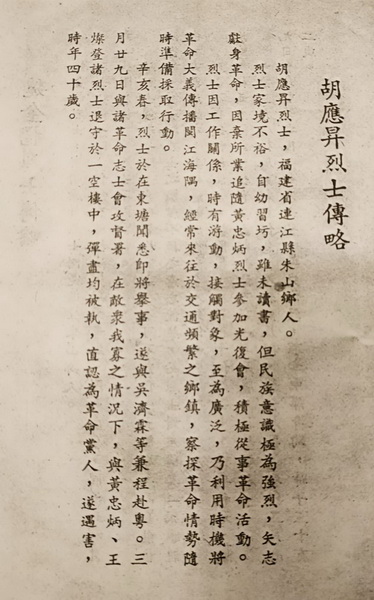 胡應昇烈士傳略
胡應昇烈士，福建省連江縣朱山鄉人。
烈士家境不裕，自幼習圬，雖未讀書，但民族意識極為強烈，矢志
獻身革命，因棄所業追隨黃忠炳烈士參加光復會，積極從事革命活動。
烈士因工作關係，時有游動，接觸對象，至為廣泛，乃利用時機將
革命大義傳播閩江海隅，經常來往於交通頻繁之鄉鎮，察探革命情勢隨
時準備採取行動。
辛亥春，烈士於在東塘聞悉即將舉事，遂與吳濟霖等兼程赴粵。三
月廿九日與諸革命志士會攻督署，在敵衆我寡之情況下，與黃忠炳、王
燦登諸烈士退守於一空樓中，彈盡均被執，直認為革命黨人，遂遇害，
時年四十歲。